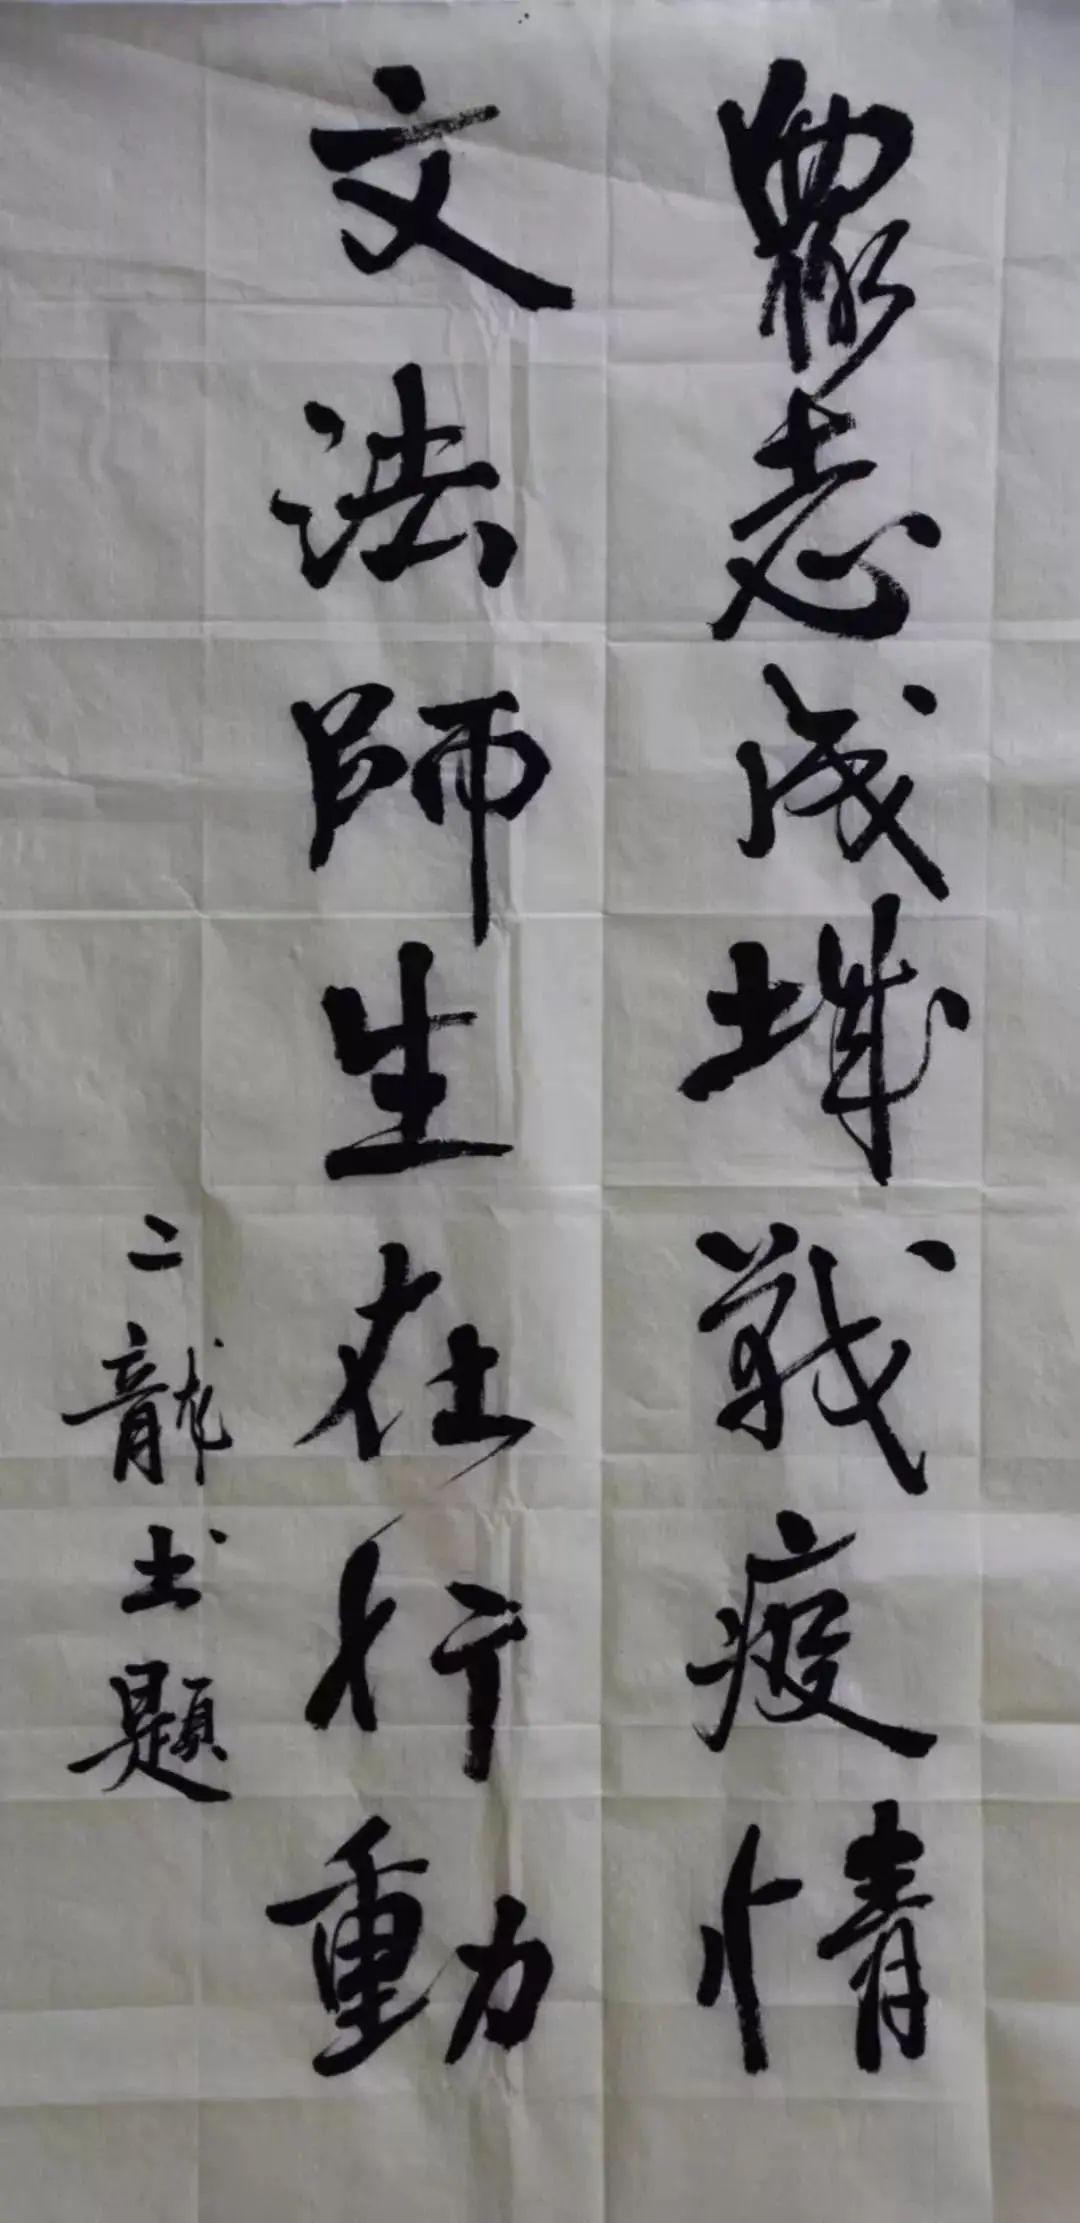 眾志成城戰疫情
文法師生在行動
二龍土題